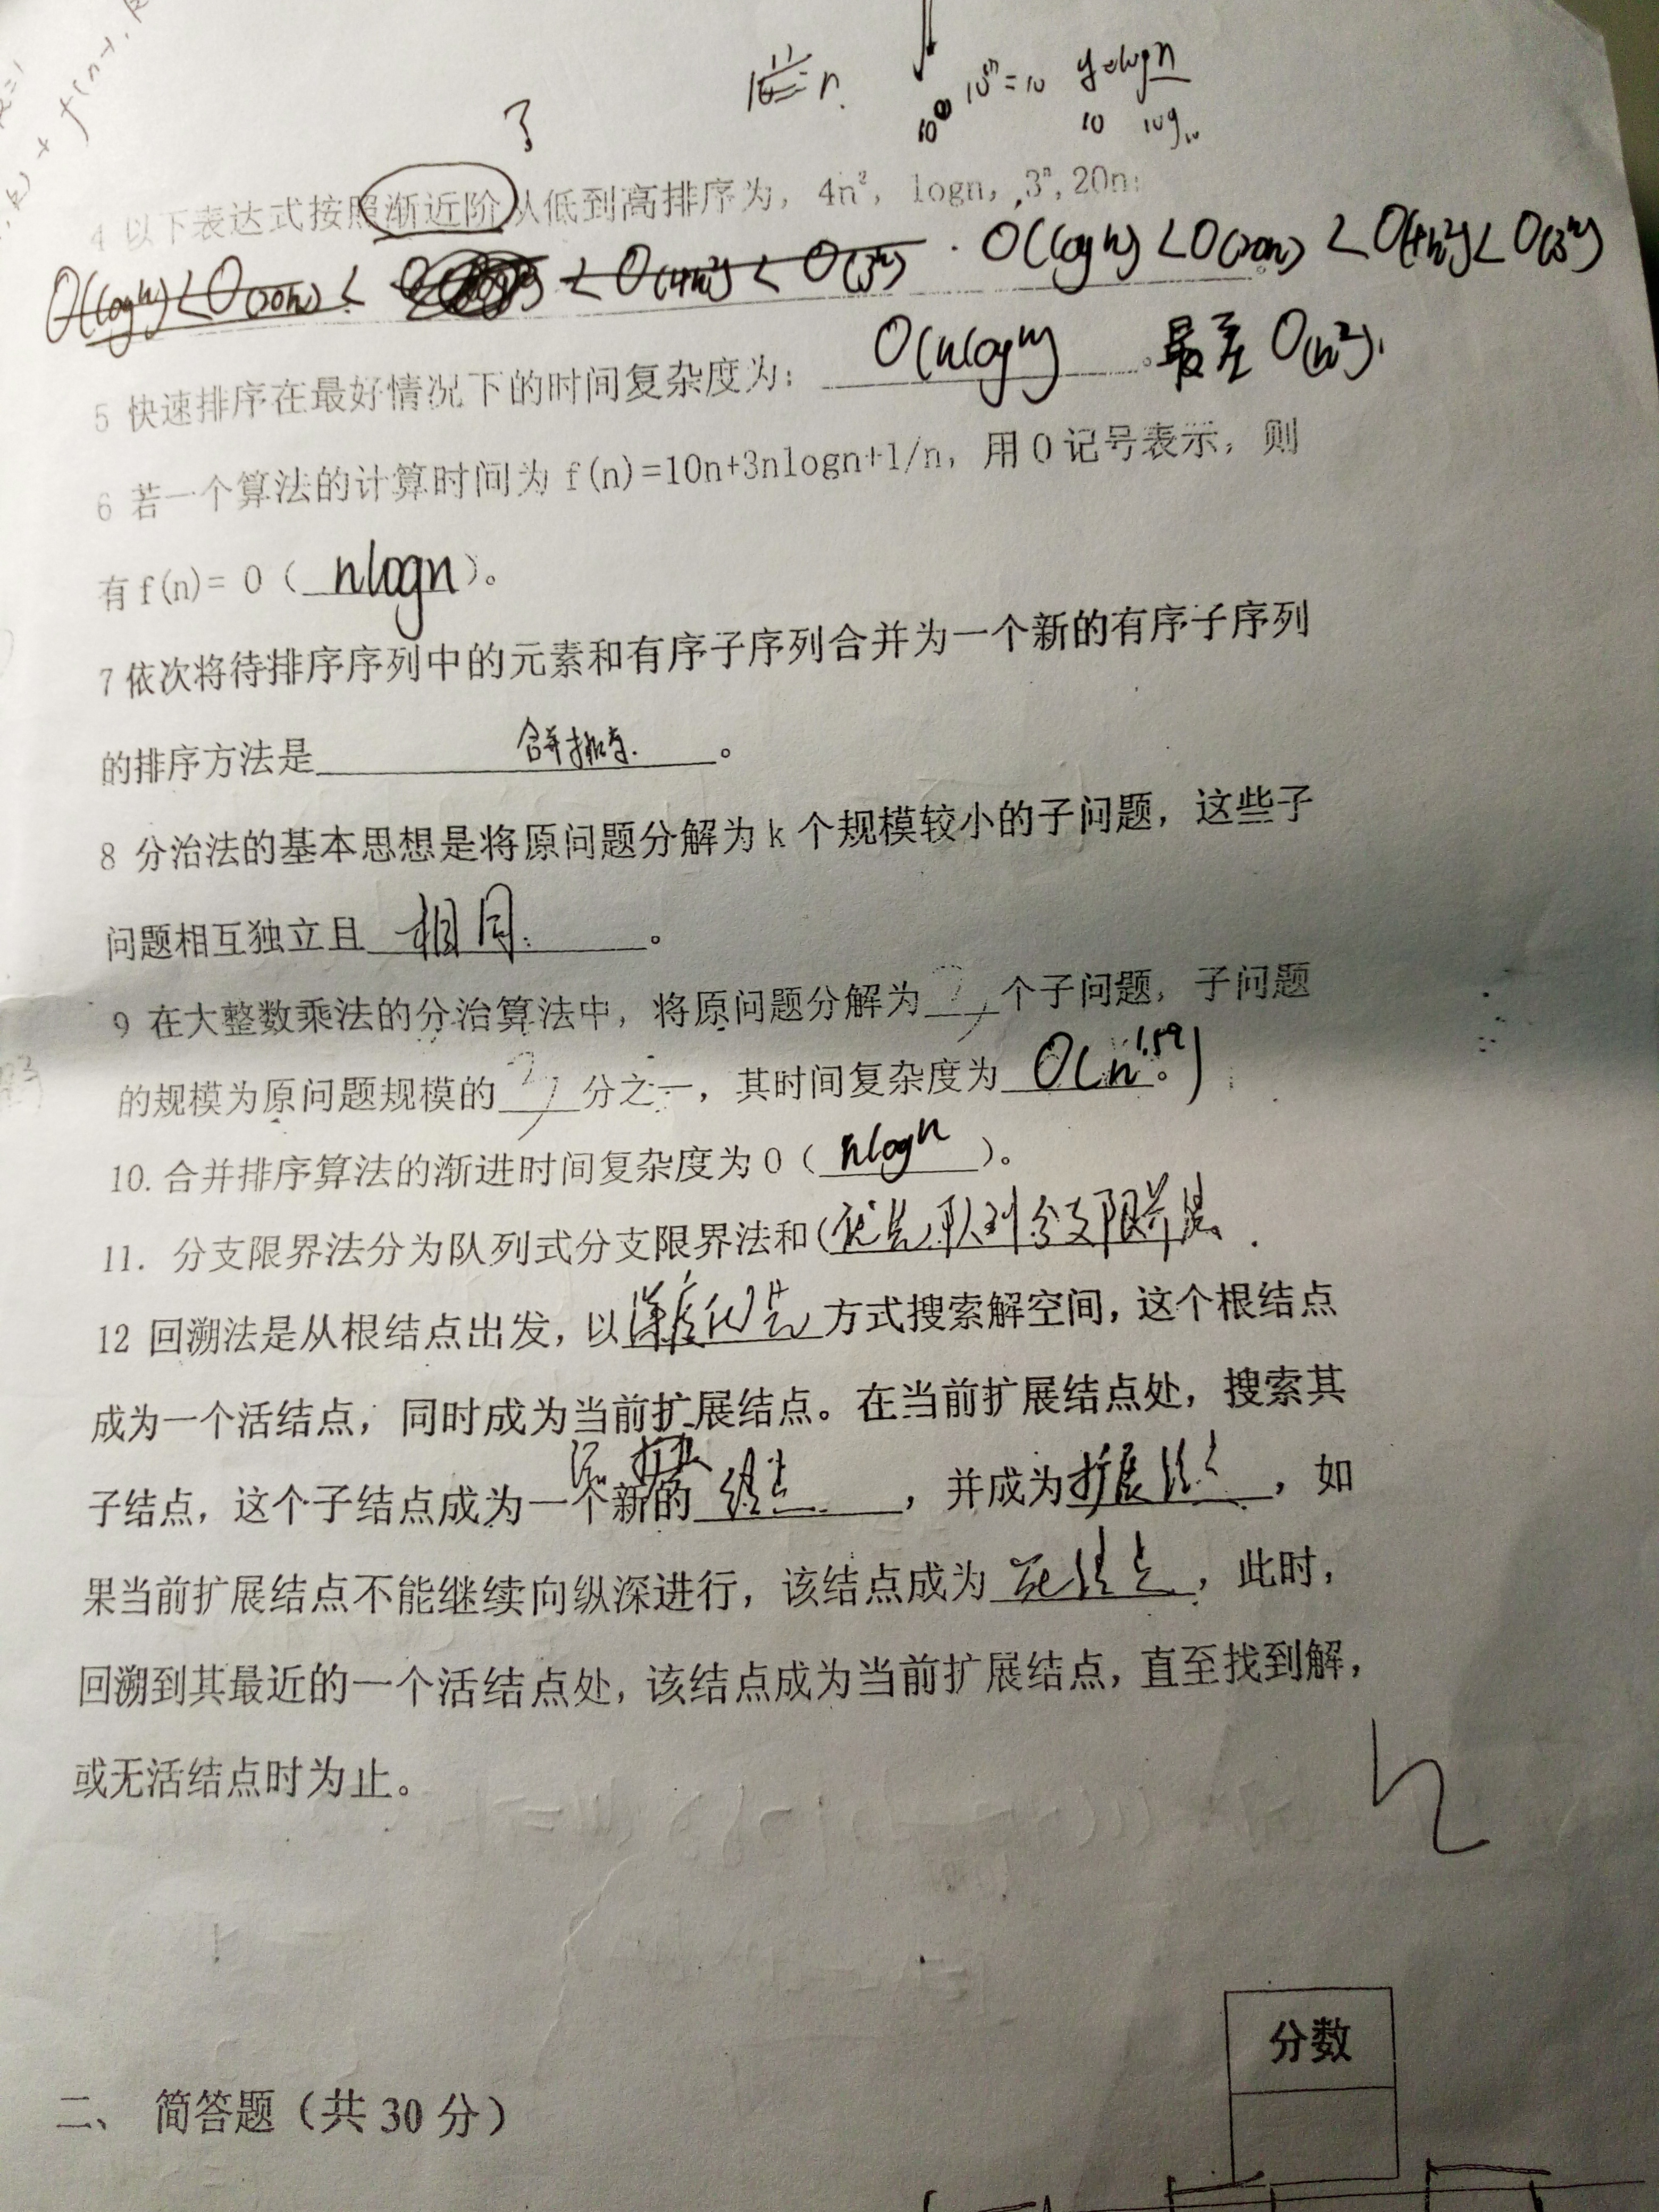 10 log10
4 以下表达式按照渐近阶从低到高排序为，4n²，logn，3ⁿ，20n：
O(logn)<O(20n)< <O(4n²)<O(3ⁿ) . O(logn)<O(20n)<O(4n²)<O(3ⁿ)
5 快速排序在最好情况下的时间复杂度为： O(nlogn) 。最差 O(n²).
6 若一个算法的计算时间为 f(n)=10n+3nlogn+1/n，用 O 记号表示，则
有 f(n)= O（ nlogn ）。
7 依次将待排序序列中的元素和有序子序列合并为一个新的有序子序列
的排序方法是 合并排序. 。
8 分治法的基本思想是将原问题分解为 k 个规模较小的子问题，这些子
问题相互独立且 相同. 。
9 在大整数乘法的分治算法中，将原问题分解为 个子问题，子问题
的规模为原问题规模的 分之一，其时间复杂度为 O(n^1.59) 。
10. 合并排序算法的渐进时间复杂度为 O（ nlogn ）。
11. 分支限界法分为队列式分支限界法和(优先队列分支限界法 .
12 回溯法是从根结点出发，以深度优先方式搜索解空间，这个根结点
成为一个活结点，同时成为当前扩展结点。在当前扩展结点处，搜索其
子结点，这个子结点成为一个新的 结点 ，并成为扩展结点，如
果当前扩展结点不能继续向纵深进行，该结点成为 死结点 ，此时，
回溯到其最近的一个活结点处，该结点成为当前扩展结点，直至找到解，
或无活结点时为止。
分数
二、 简答题（共 30 分）